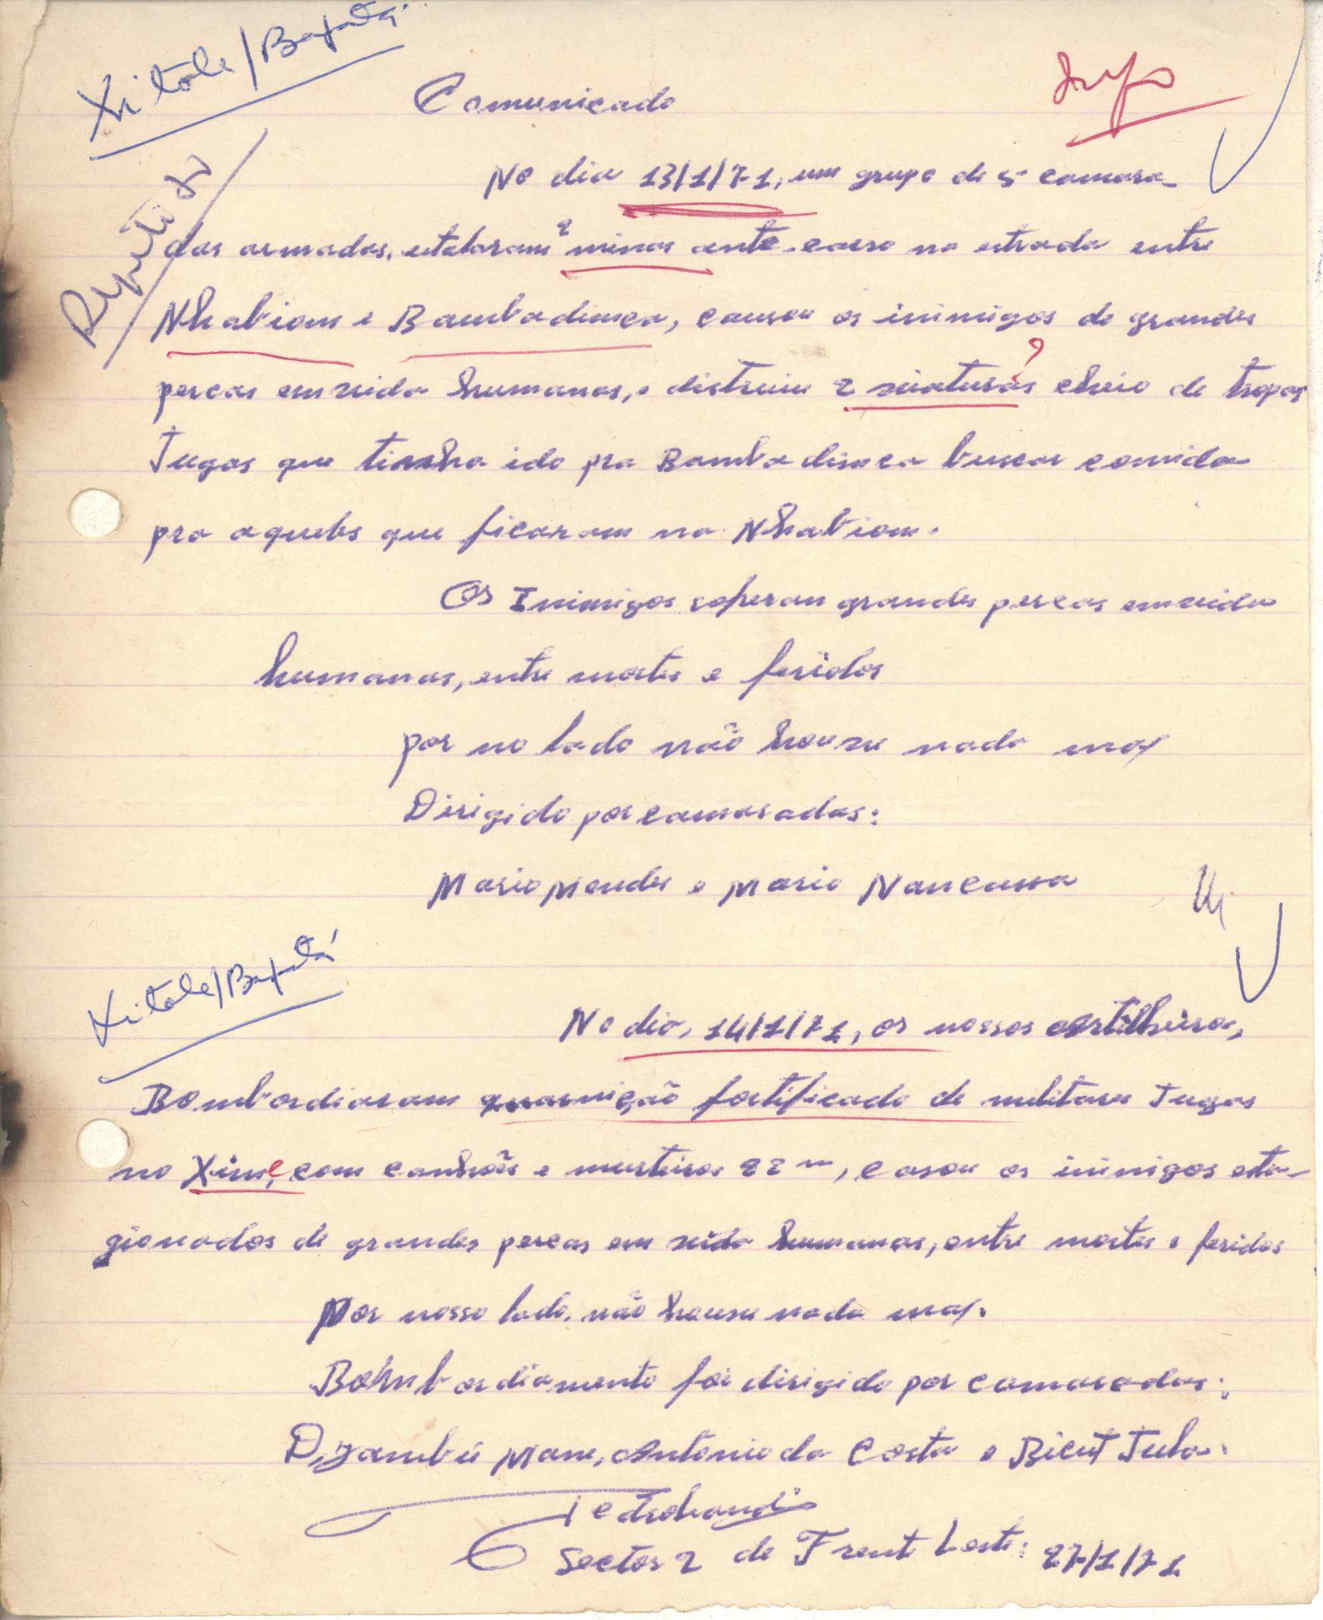 Xitole/Bafatá
Comunicado
Repetido
No dia 13/1/71, um grupo de 5 camara-
das armadas, utalaram 2 minas ante-carro na utrada entre
Nhabiam e Bambadinca, causou os inimigos de grandes
percas em vida humanas, e distruiu 2 viaturas ? cheio de tropas
Tugas que tinha ido pra Bambadinca buscar comida
pra aqueles que ficaram na Nhabiam.
Os Inimigos soferam grandes percas em vida
humanas, entre mortes e feridos
por no lado não houve nada max
Dirigido por camaradas:
Mario Mendes e Mario Nancassa
Xitole/Bafatá
No dia, 14/1/71, os nossos artilheiros,
Bombardiaram guarnição fortificado de militares Tugas
no Xime, com canhões e morteiros 82 m, casou os inimigos esta-
gionados de grandes percas em vida humanas, entre mortes e feridos
Por nosso lado, não houve nada max.
Bombardiamento foi dirigido por camaradas:
Djambú Mane, Antonio da Costa e Bicut Tula.
Sector 2 de Frent Leste: 27/1/71